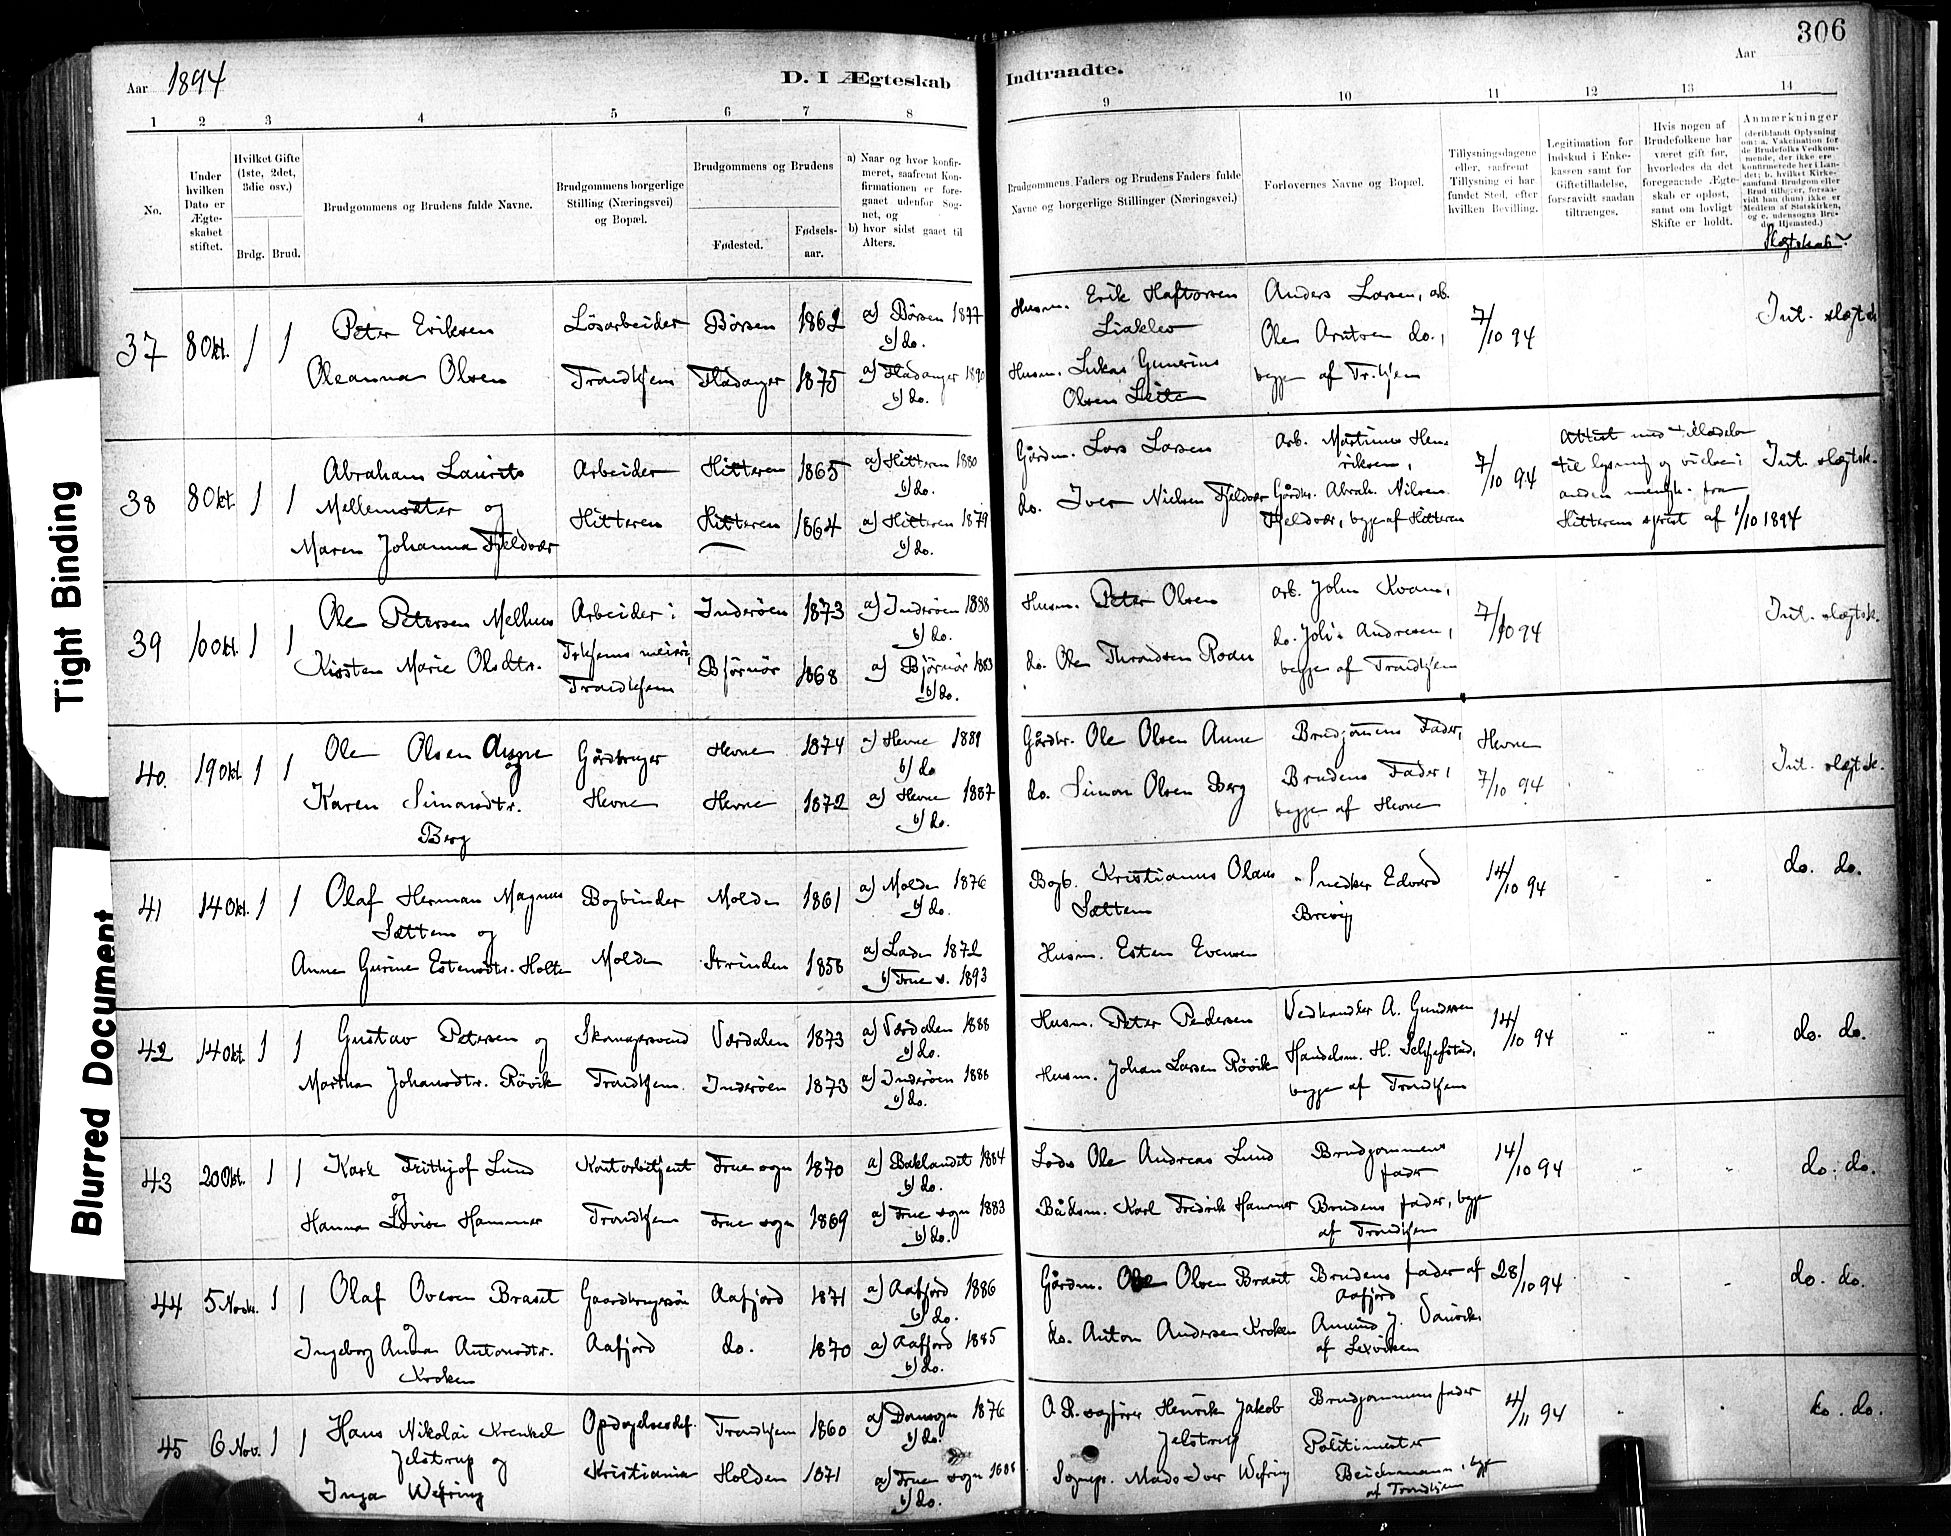 306
Aar 1894
D. I Ægteskab Indtraadte.
Aar
1 2 3 4 5 6 7 8 9 10 11 12 13 14
No.
Under hvilken Dato er Ægteskabet stiftet.
Hvilket Gifte (1ste, 2det, 3die osv.)
Brdg. Brud.
Brudgommens og Brudens fulde Navne.
Brudgommens borgerlige Stilling (Næringsvei) og Bopæl.
Brudgommens og Brudens
Fødested.
Fødselsaar.
a) Naar og hvor konfirmeret, saafremt Konfirmationen er foregaaet udenfor Sognet, og
b) hvor sidst gaaet til Alters.
Brudgommens Faders og Brudens Faders fulde Navne og borgerlige Stillinger (Næringsvei.)
Forlovernes Navne og Bopæl.
Tillysningsdagene eller, saafremt Tillysning ei har fundet Sted, efter hvilken Bevilling.
Legitimation for Indskud i Enkekassen samt for Giftetilladelse, forsaavidt saadan tiltrænges.
Hvis nogen af Brudefolkene har været gift før, hvorledes da det foregaaende Ægteskab er opløst, samt om lovligt Skifte er holdt.
Anmærkninger
(deriblandt Oplysning om: a. Vakcination for de Brudefolks Vedkommende, der ikke ere konfirmerede her i Landet; b. hvilket Kirkesamfund Brudgom eller Brud tilhører, forsaavidt han (hun) ikke er Medlem af Statskirken, og c. udensogns Bruds Hjemsted.)
Slægtskab?
37 8 Okt. 1 1
Peter Eriksen
Oleanna Olsen
Løsarbeider
Trondhjem
Børsen 1862
Fladanger 1875
a) Børsen 1877
b) do.
a) Fladanger 1890
b) do.
Husm. Erik Haftorsen
Liaklev
Husm. Lukas Gunerius
Olsen Leite
Anders Larsen, arb.
Ole Arntsen do.,
begge af Tr.hjem
7/10 94
Int. slægtsk.
38 8 Okt. 1 1
Abraham Laurits
Mellemsæter og
Maren Johanna Fjeldvær
Arbeider
Hitteren
Hitteren 1865
Hitteren 1864
a) Hitteren 1880
b) do.
a) Hitteren 1879
b) do.
Gårdm. Lars Larsen
do. Iver Nielsen Fjeldvær
Arb. Martinus Henriksen,
Gårdbr. Abrah. Nilsen
Fjeldvær, begge af Hitteren
7/10 94
Attest med tilladelse
til lysning og vielse i
anden menigh. fra
Hitterens sprest af 1/10 1894
Int. slægtsk.
39 10 Okt. 1 1
Ole Petersen Melhus
Kirsten Marie Olsdtr.
Arbeider i
Trhjems meieri,
Trondhjem
Inderøen 1873
Bjørnør 1868
a) Inderøen 1888
b) do.
a) Bjørnør 1883
b) do.
Husm. Peter Olsen
do. Ole Throndsen Roan
arb. John Kvam,
do. Johs Andresen,
begge af Trondhjem
7/10 94
Int. slægtsk.
40. 19 Okt. 1 1
Ole Olsen Aune
og
Karen Simonsdtr.
Berg
Gårdbruger
Hevne
Hevne 1874
Hevne 1872
a) Hevne 1889
b) do
a) Hevne 1887
b) do.
Gårdbr. Ole Olsen Aune
do. Simon Olsen Berg
Brudgommens Fader,
Brudens Fader,
begge af Hevne
Hevne
7/10 94
Int. slægtsk.
41 14 Okt. 1 1
Olaf Herman Magnus
Sættem og
Anne Gurine Estensdtr. Holte
Bogbinder
Molde
Molde 1861
Strinden 1856
a) Molde 1876
b) do.
a) Lade 1872
b) Frue s. 1893
Bogb. Kristianus Olaus
Sættem
Husm. Esten Evensen
Snedker Edvard
Brevig
14/10 94
do. do.
42 14 Okt. 1 1
Gustav Petersen og
Martha Johansdtr. Røvik
Skomagersvend
Trondhjem.
Værdalen 1873
Inderøen 1873
a) Værdalen 1888
b) do.
a) Inderøen 1888
b) do.
Husm. Peter Pedersen
Husm. Johan Larsen Røvik
Vedhandler A. Gundersen
Handelsm. H. Selgefstad,
begge af Trondhjem
14/10 94
do. do.
43 20 Okt. 1 1
Karl Frithjof Lund
og
Hanna Lovise Hammer
Kontorbetjent
Trondhjem
Frue sogn 1870
Frue sogn 1869
a) Baklandet 1884
b) do.
a) Frue sogn 1883
b) do.
Lods Ole Andreas Lund
Bådsm. Karl Fredrik Hammer
Brudgommens
fader
Brudens fader, begge
af Trondhjem
14/10 94
do. do.
44 5 Novbr. 1 1
Olaf Olsen Braset
og
Ingeborg Anna Antonsdtr.
Kroken
Gaardbrugersøn
Aafjord
Aafjord 1871
do. 1870
a) Aafjord 1886
b) do.
a) Aafjord 1885
b) do.
Gårdm. Ole Olsen Braset
do. Anton Andersen Kroken
Brudens fader af
Aafjord
Amund J. Vanvik
af Lexviken
28/10 94
do. do.
45 6 Nov. 1 1
Hans Nikolai Krenkel
Jelstrup og
Inga Wefring
Opdagelsesbef.
Kristiania
Trondhjem 1860
Holden 1871
a) Domsogn 1876
b) do.
a) Frue sogn
b) do.
O. R. sagfører Henrik Jakob
Jelstrup
Sognepr. Mads Iver Wefring
Brudgommens fader
Politimester
Beichmann, begge
af Trondhjem
4/11 94
do. do.
Tight Binding
Blurred Document